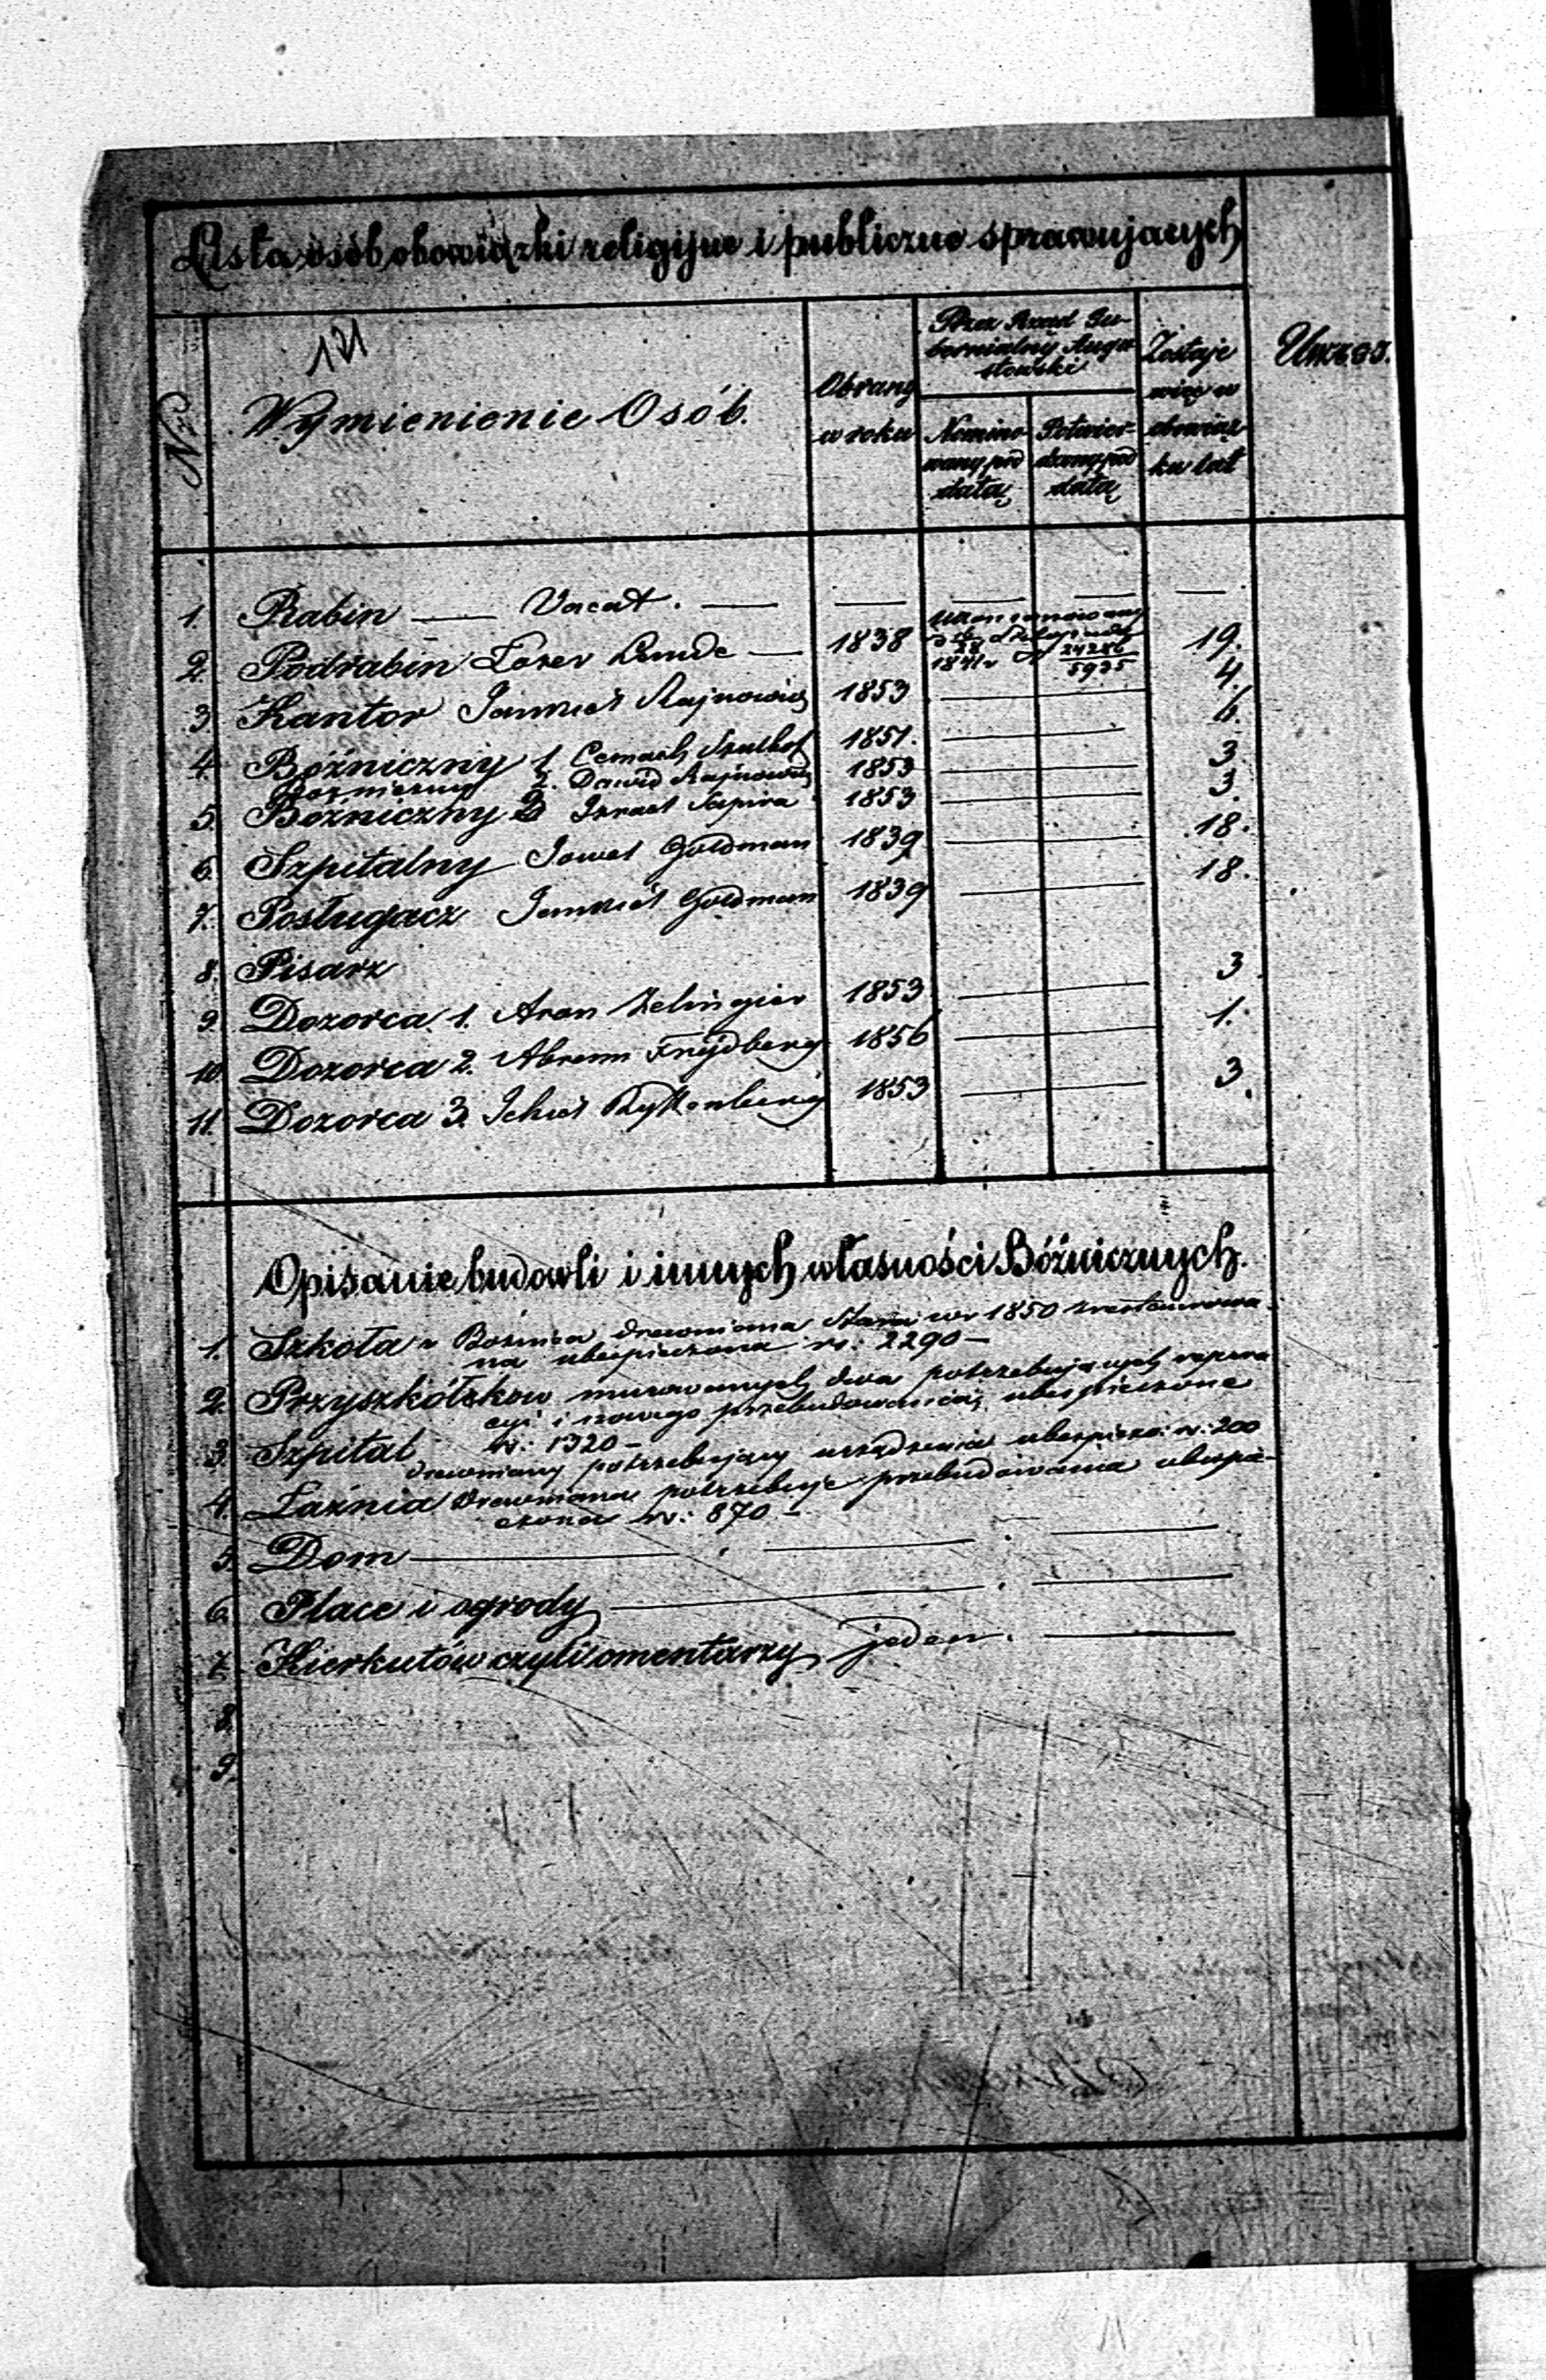 Lista osób obowiązki religijne i publiczne sprawujących
121
Nr
Wymienienie Osób.
Obrany w roku
Przez Rząd Gubernialny Augustowski
Nominowany pod datą
Potwierdzony pod datą
Zostaje więc w obowiązku lat
Uwaga.
1. Rabin — Vacat. — — — — —
2. Podrabin Lozer — 1838 28 1841 r 24286 5925 19.
3. Kantor Jankiel Rajnowicz 1853 — 4.
4. Bóźniczny 1. Cemach 1851. — 6.
2. Dawid Rajnowicz 1853 — 3.
5. Bóźniczny Izrael Sapira 1853 — 3.
6. Szpitalny Jowel Goldman 1839 — 18.
7. Posługacz Jankiel Goldman 1839 — 18.
8. Pisarz
9. Dozorca 1. Aron Zelingier 1853 — 3.
10 Dozorca 2. Abram Frydberg 1856 — 1.
11. Dozorca 3. 1853 — 3.
Opisanie budowli i innych własności Bóźnicznych.
1. Szkoła Bożnica drewniana Stara w r 1850 zrestaurowa-
na ubezpieczona rs: 2290 —
2. Przyszkółkow murowanych dwa potrzebujących repera
cyi i nowego przebudowania, ubezpieczone
rs: 1320 —
3. Szpital drewniany potrzebujący urządzenia ubezpiecz: rs: 200
4. Łaźnia drewniana potrzebuje przebudowania ubezpie-
czona rs: 870 —
5. Dom — . — . —
6. Place i ogrody — . —
7. Kierkutów czyli cmentarzy jeden. —
8.
9.